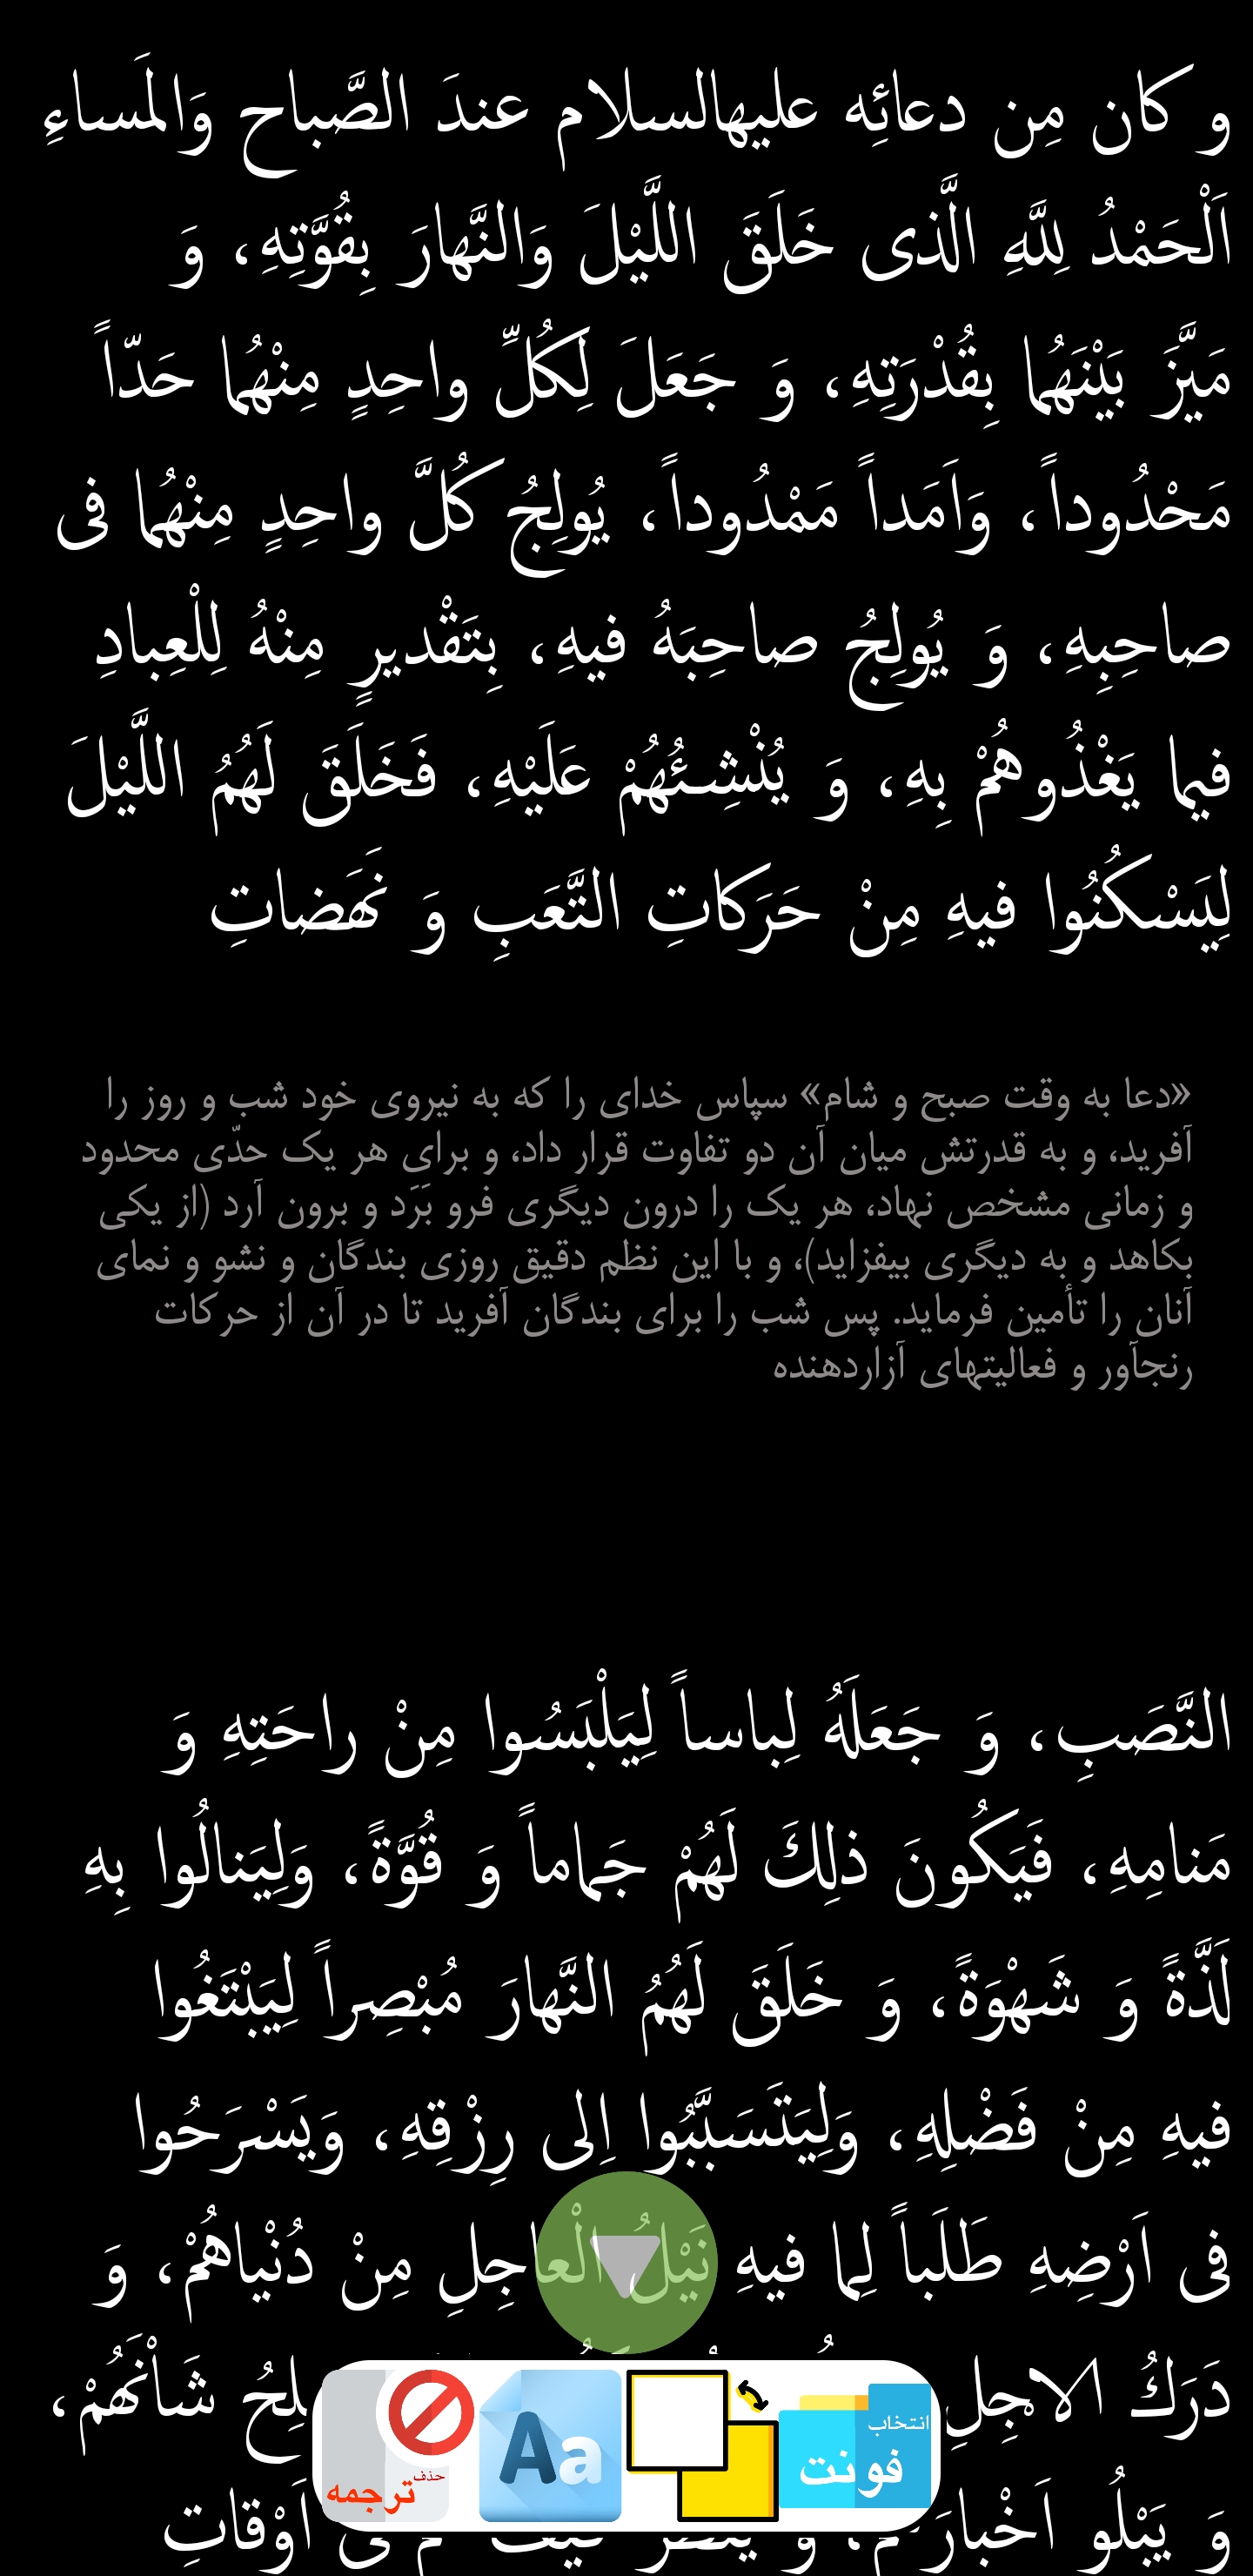 و كان مِن دعائِه عليهالسلام عندَ الصَّباح وَالمَساءِ
اَلْحَمْدُ لِلَّهِ الَّذى خَلَقَ اللَّيْلَ وَالنَّهارَ بِقُوَّتِهِ، وَ
مَيَّزَ بَيْنَهُما بِقُدْرَتِهِ، وَ جَعَلَ لِكُلِّ واحِدٍ مِنْهُما حَدّاً
مَحْدُوداً، وَاَمَداً مَمْدُوداً، يُولِجُ كُلَّ واحِدٍ مِنْهُما فى
صاحِبِهِ، وَ يُولِجُ صاحِبَهُ فيهِ، بِتَقْديرٍ مِنْهُ لِلْعِبادِ
فيما يَغْذُوهُمْ بِهِ، وَ يُنْشِئُهُمْ عَلَيْهِ، فَخَلَقَ لَهُمُ اللَّيْلَ
لِيَسْكُنُوا فيهِ مِنْ حَرَكاتِ التَّعَبِ وَ نَهَضاتِ
«دعا به وقت صبح و شام» سپاس خدای را که به نیروی خود شب و روز را
آفرید، و به قدرتش میان آن دو تفاوت قرار داد، و برای هر یک حدّی محدود
و زمانی مشخص نهاد، هر یک را درون دیگری فرو بَرَد و برون آرد (از یکی
بکاهد و به دیگری بیفزاید)، و با این نظم دقیق روزی بندگان و نشو و نمای
آنان را تأمین فرماید. پس شب را برای بندگان آفرید تا در آن از حرکات
رنجآور و فعالیتهای آزاردهنده
النَّصَبِ، وَ جَعَلَهُ لِباساً لِيَلْبَسُوا مِنْ راحَتِهِ وَ
مَنامِهِ، فَيَكُونَ ذلِكَ لَهُمْ جَماماً وَ قُوَّةً، وَلِيَنالُوا بِهِ
لَذَّةً وَ شَهْوَةً، وَ خَلَقَ لَهُمُ النَّهارَ مُبْصِراً لِيَبْتَغُوا
فيهِ مِنْ فَضْلِهِ، وَلِيَتَسَبَّبُوا اِلى رِزْقِهِ، وَيَسْرَحُوا
فى اَرْضِهِ طَلَباً لِما فيهِ نَيْلُ الْعاجِلِ مِنْ دُنْياهُمْ، وَ
دَرَكُ الاجِلِ شَأْنَهُمْ،
وَ يَبْلُو اَوْقاتِ
حذف
ترجمه
Aa
انتخاب
فونت